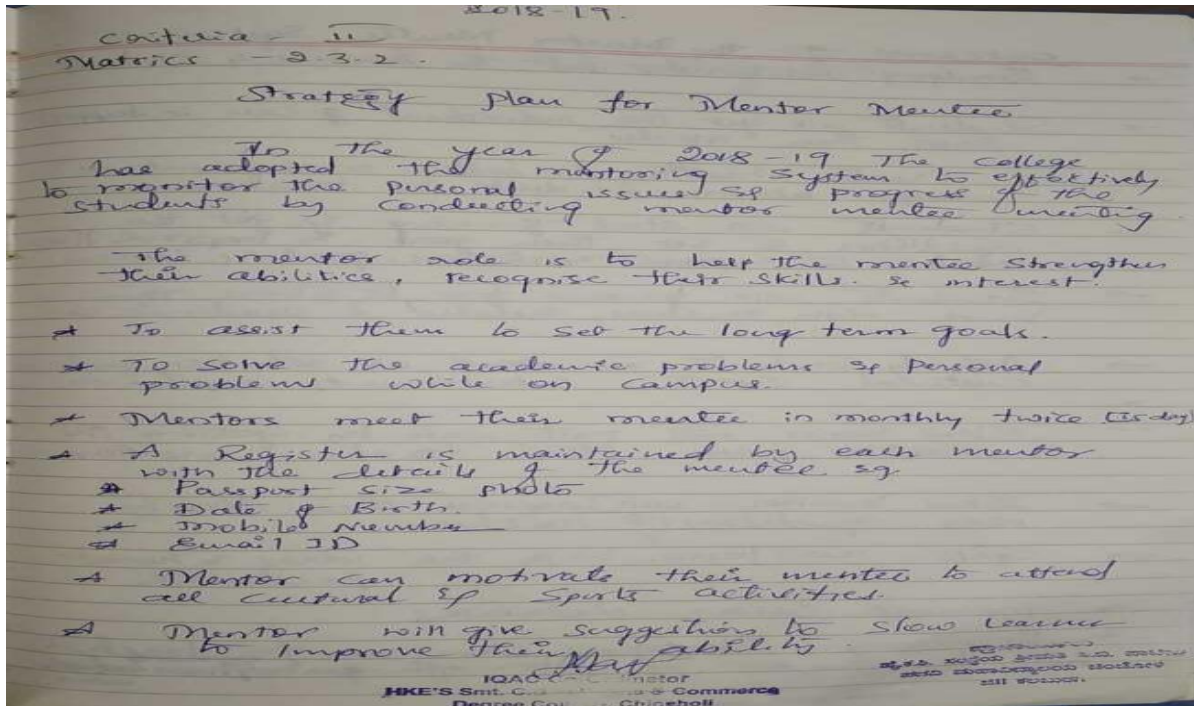 2018-19.
Criteria - II
Matrics - 2.3.2.
Strategy plan for Mentor Mentee
In the year of 2018-19 The college
has adopted the mentoring system to effectively
to monitor the personal issues & progress of the
students by conducting mentor mentee meeting
The mentor role is to help the mentee strengthen
their abilities, recognise their skills. & interest.
* To assist them to set the long term goals.
* To solve the academic problems & personal
problems while on campus.
* Mentors meet their mentee in monthly twice (15 day)
* A Register is maintained by each mentor
with the details of the mentee eg.
* Passport size photo
* Date of Birth.
* Mobile Number
* Email ID
* Mentor can motivate their mentee to attend
all cultural & Sports activities.
* Mentor will give suggestion to slow learner
to improve their ability.
IQAC
HKE'S Smt. & Commerce
Degree Chincholi